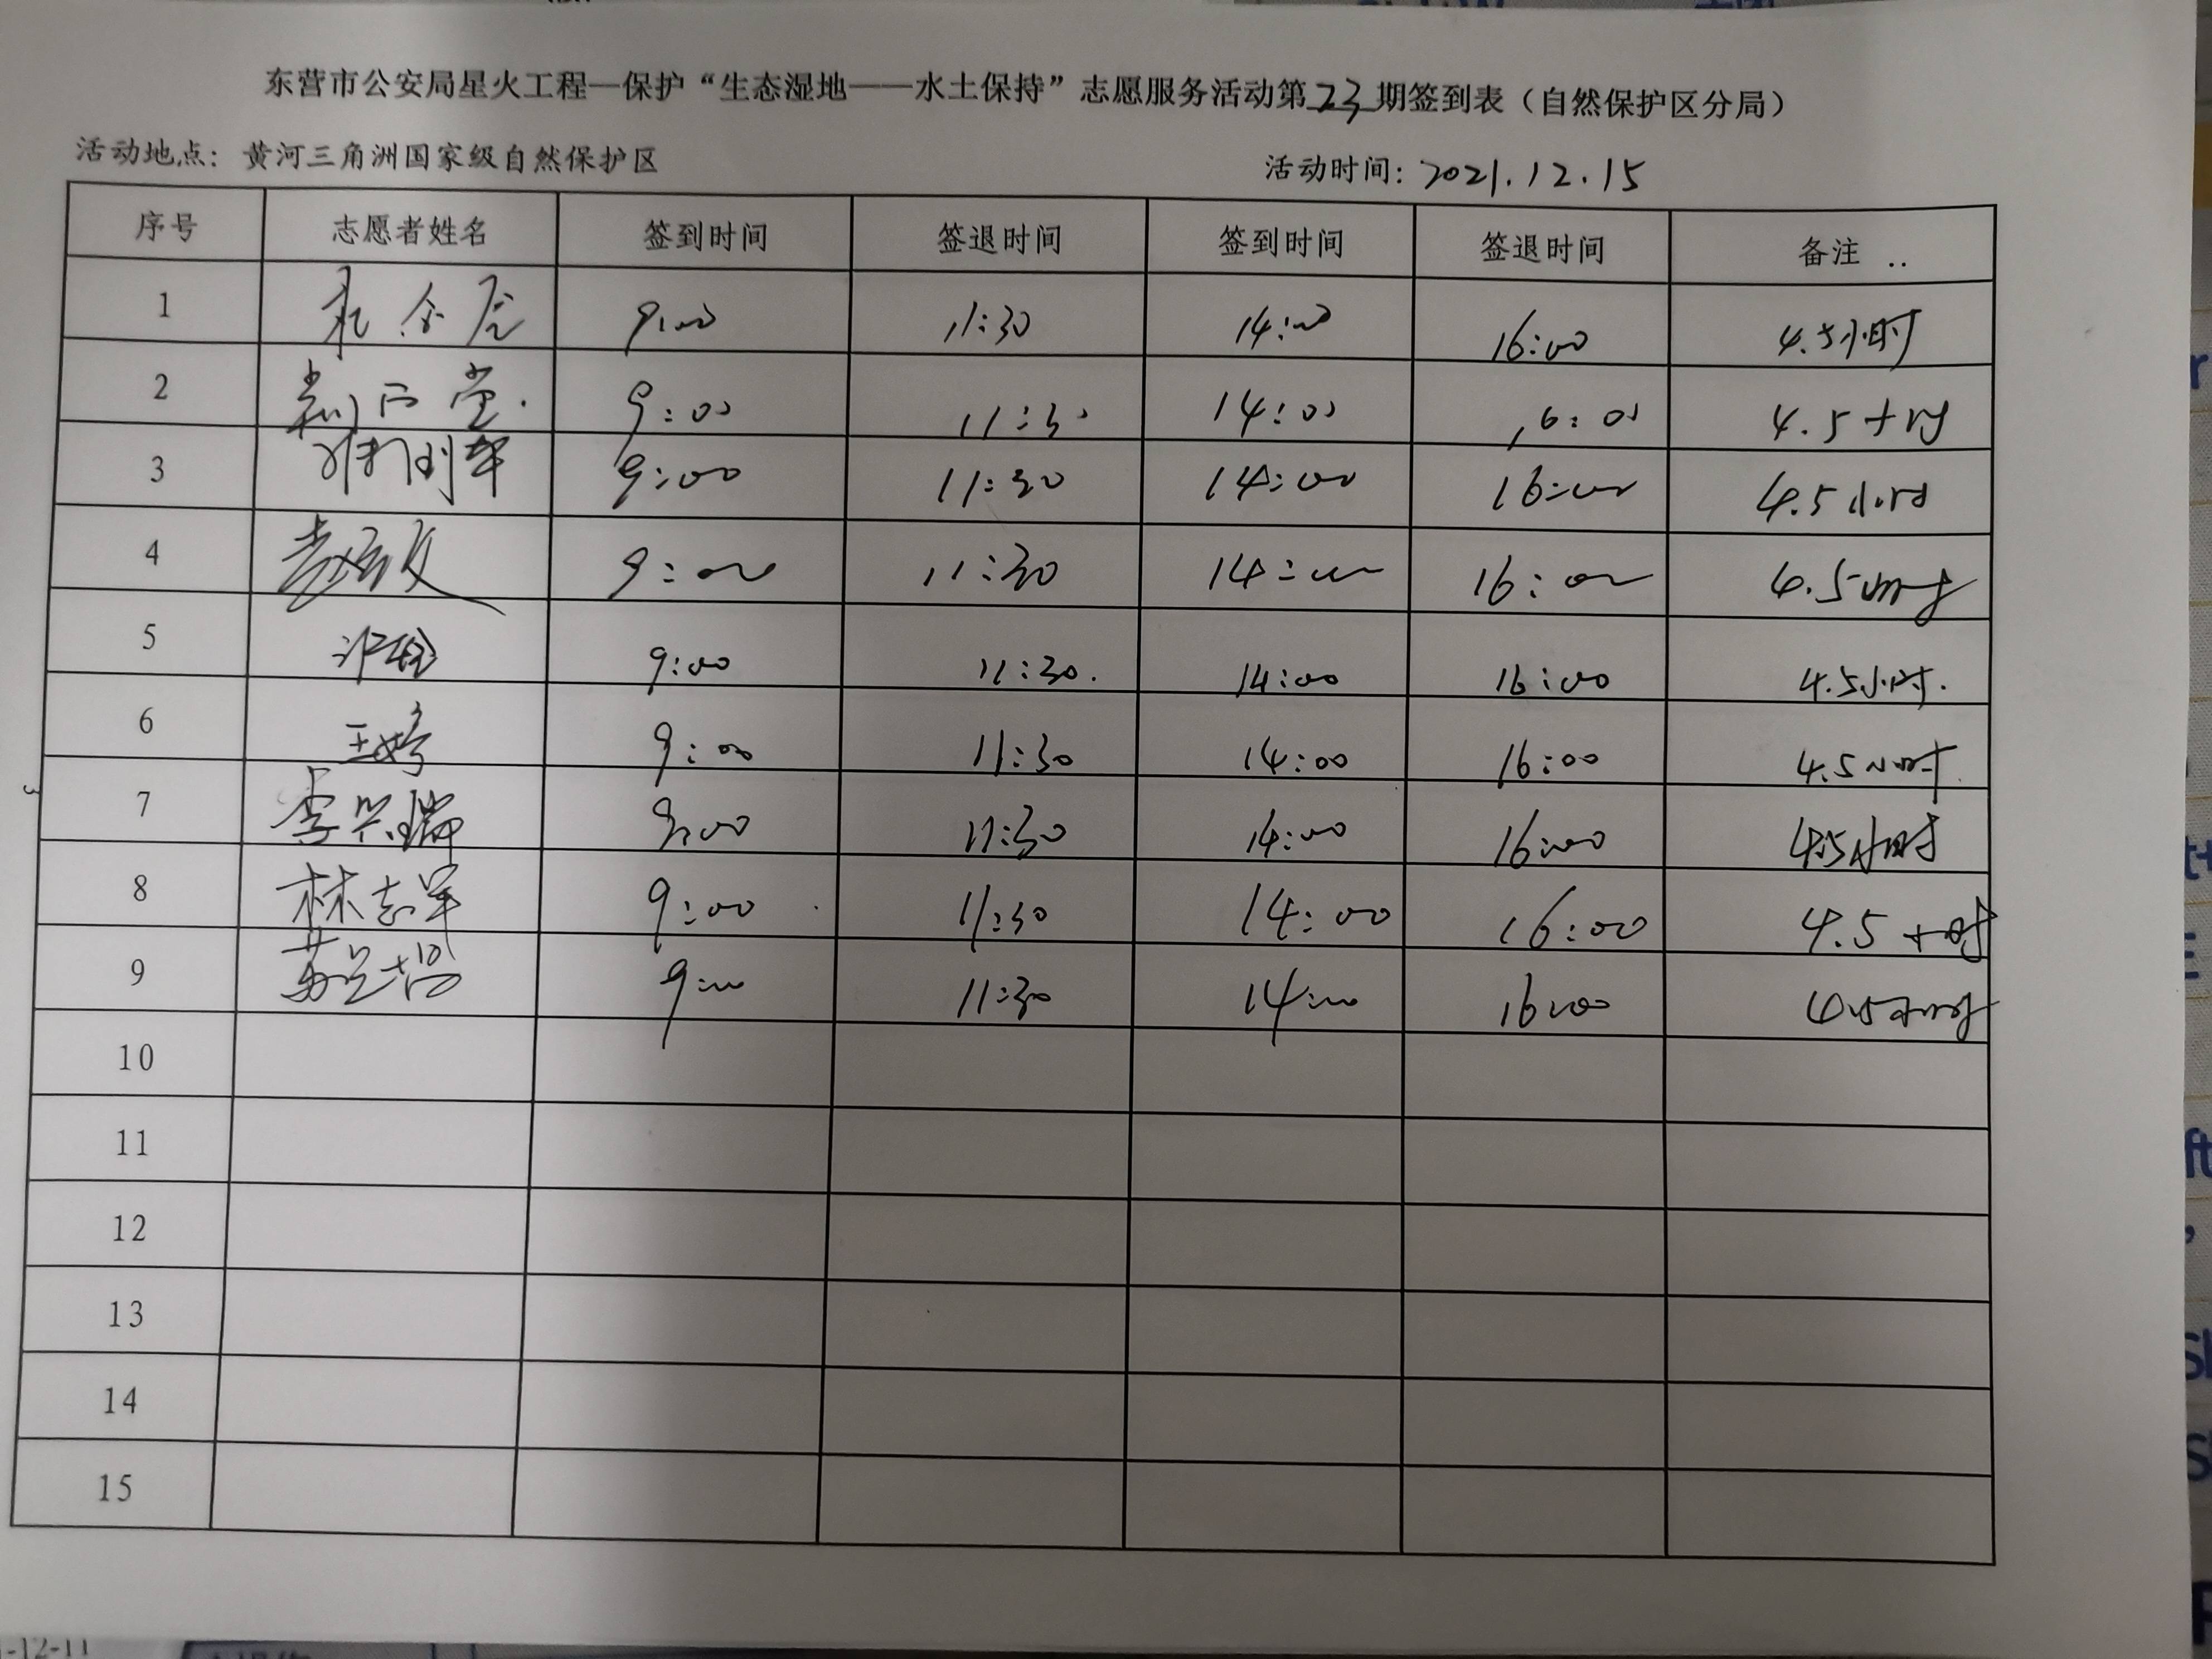 东营市公安局星火工程—保护“生态湿地——水土保持”志愿服务活动第23期签到表（自然保护区分局）
活动地点：黄河三角洲国家级自然保护区 活动时间：2021.12.15
序号 志愿者姓名 签到时间 签退时间 签到时间 签退时间 备注
1 9:00 11:30 14:00 16:00 4.5小时
2 9:00 11:30 14:00 16:00 4.5小时
3 9:00 11:30 14:00 16:00 4.5小时
4 9:00 11:30 14:00 16:00 4.5小时
5 9:00 11:30. 14:00 16:00 4.5小时.
6 王婷 9:00 11:30 14:00 16:00 4.5小时.
7 李兴瑞 9:00 11:30 14:00 16:00 4.5小时
8 林志军 9:00 11:30 14:00 16:00 4.5小时
9 9:00 11:30 14:00 16:00 4.5小时
10
11
12
13
14
15
-12-11